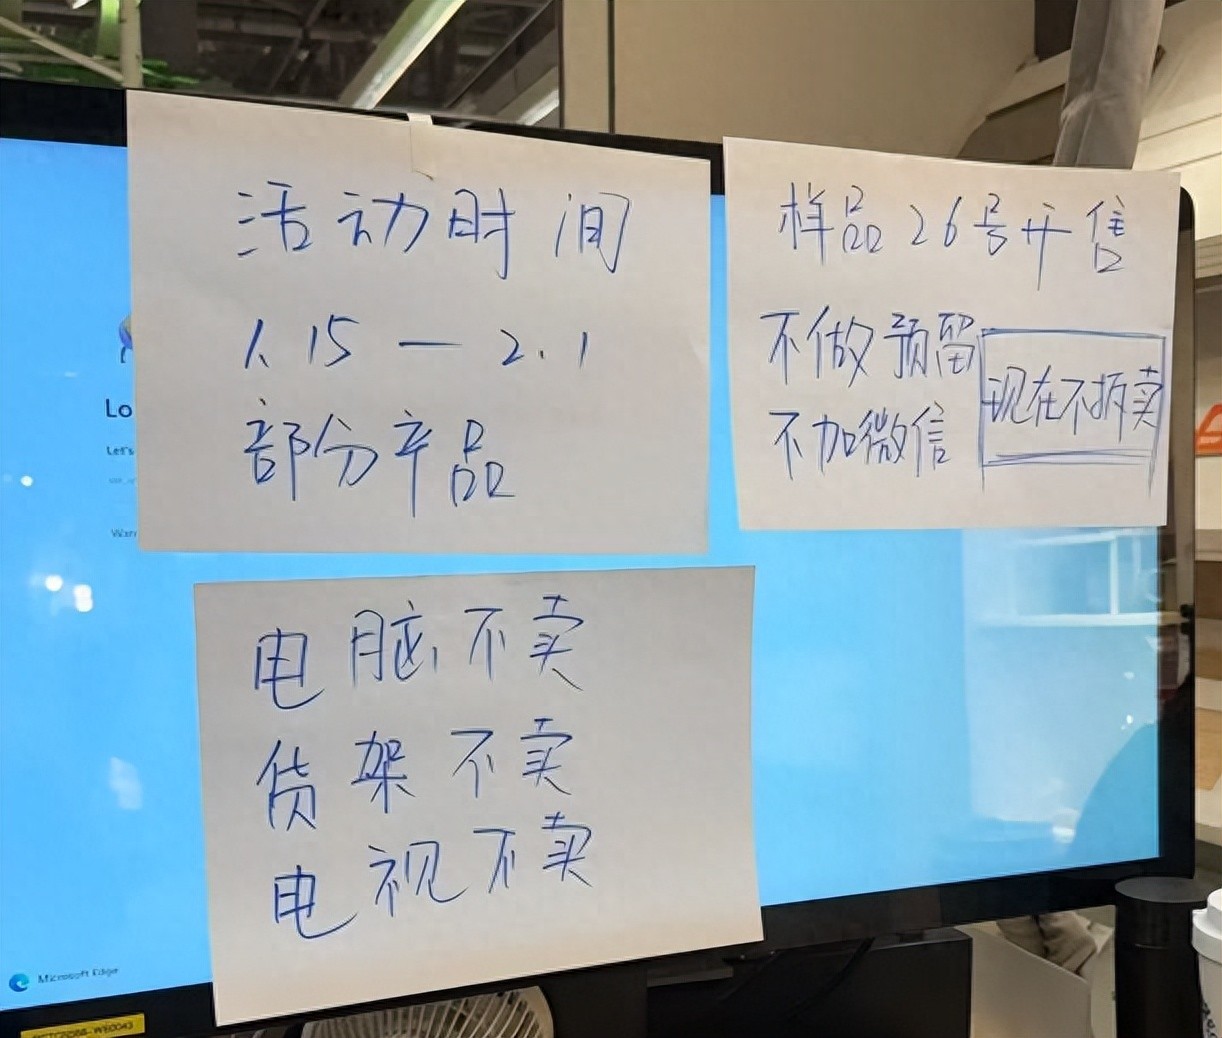 活动时间
1.15 — 2.1
部分产品
样品26号开售
不做预留
不加微信
现在不拆卖
电脑不卖
货架不卖
电视不卖
Lo
Let's
Microsoft Edge